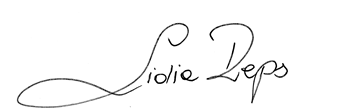 Lidia Deps